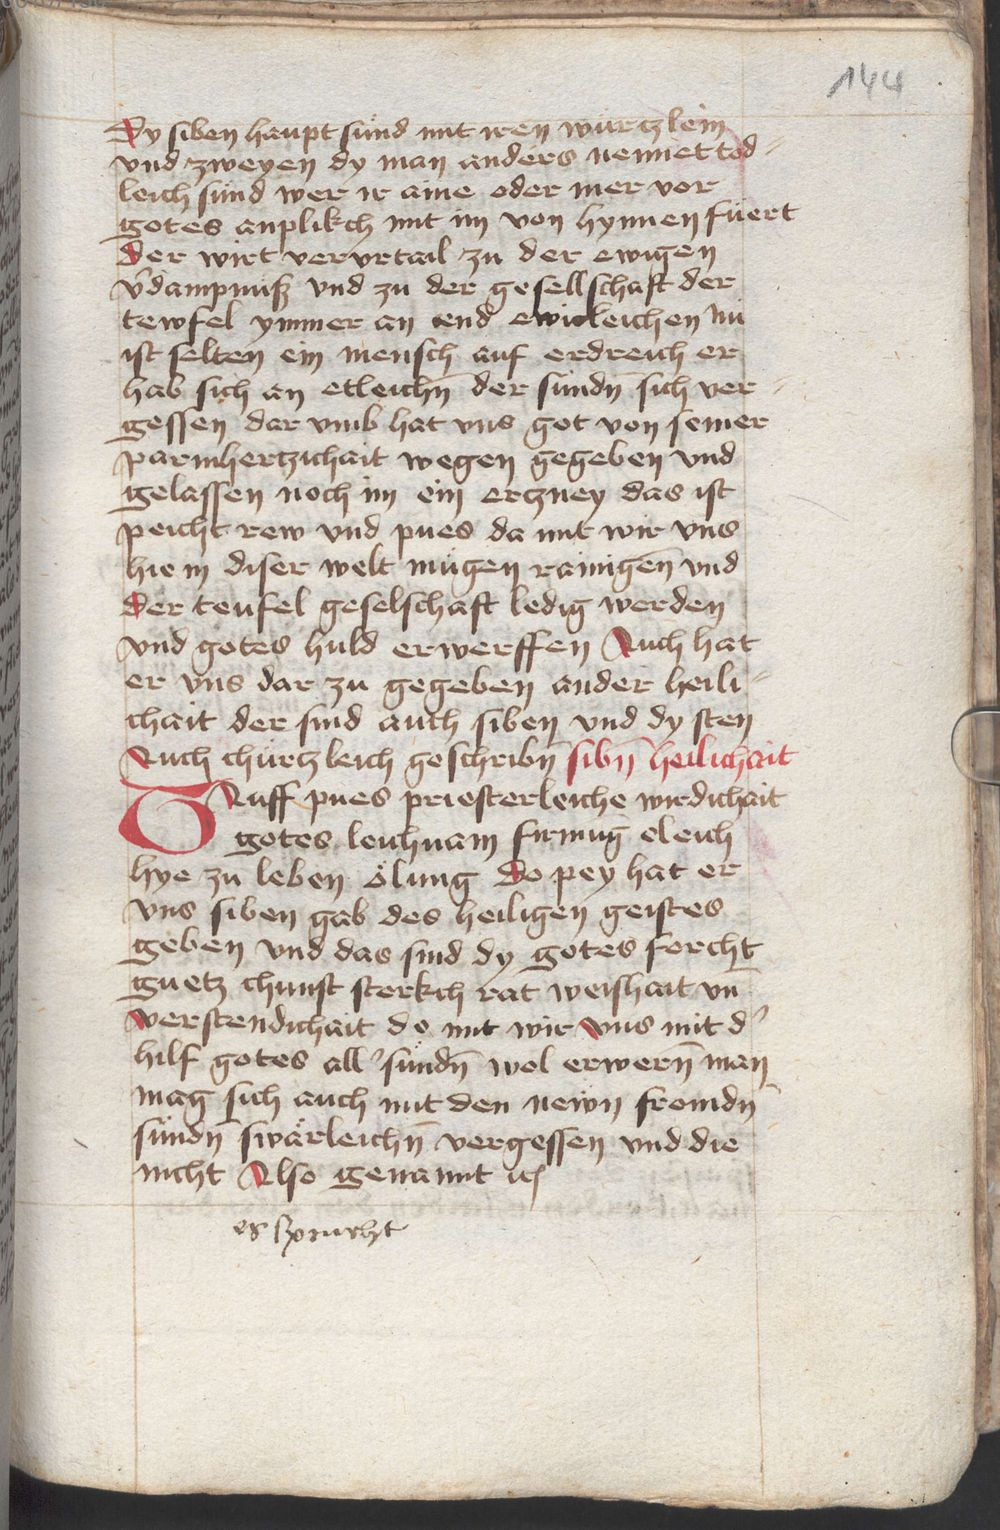 144
Dy siben haupt sünd mit iren würtzlein
vnd zweyen dy man anders nennet tod-
leich sünd wer ir aine oder mer vor
gotes anplikch mit im von hynnen füert
Der wirt vervrtail zu der ewigen
v̄dampnüß vnd zu der gesellschaft der
tewfel ymmer an end ewicleichen Nu
ist selten ein mensch auf erdreich er
hab sich an etleichn̄ der sündn̄ sich ver-
gessen dar vmb hat vns got von seiner
parmhertzichait wegen gegeben vnd
gelassen noch im ein ertzney das ist
peicht rew vnd pues da mit wir vns
hie in diser welt mügen rainigen vnd
Der teufel geselschaft ledig werden
vnd gotes huld erwerffen Auch hat
er vns dar zu gegeben ander heili-
chait der sind auch siben vnd dy sten
Auch chürtzleich geschribn̄ sibn̄ heilichait
TAuff pues priesterleiche wirdichait
gotes leichnam firmūg eleich
hye zu leben ölung Do pey hat er
vns siben gab des heiligen geistes
geben vnd das sind dy gotes forcht
guetz chunst sterkch rat weishait vn̄
verstendichait do mit wir vns mit d'
hilf gotes all' sündn̄ wol erwern̄ man
mag sich auch mit den newn fromdn̄
sündn̄ swärleichn̄ vergessen vnd die
nicht Also genannt ꝛc
es spricht